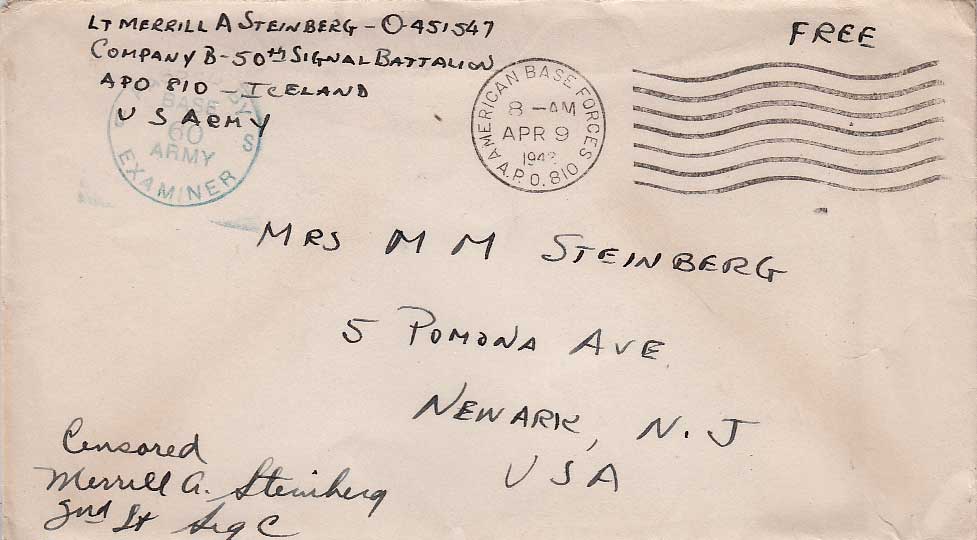 LT MERRILL A STEINBERG - O 451547
COMPANY B - 50th SIGNAL BATTALION
APO 810 - ICELAND
U S ARMY
FREE
BASE
60
ARMY
EXAMINER
AMERICAN BASE FORCES
8 - AM
APR 9
A.P.O. 810
MRS M M STEINBERG
5 POMONA AVE
NEWARK, N. J
USA
Censored
Merrill A. Steinberg
2nd Lt Sig C